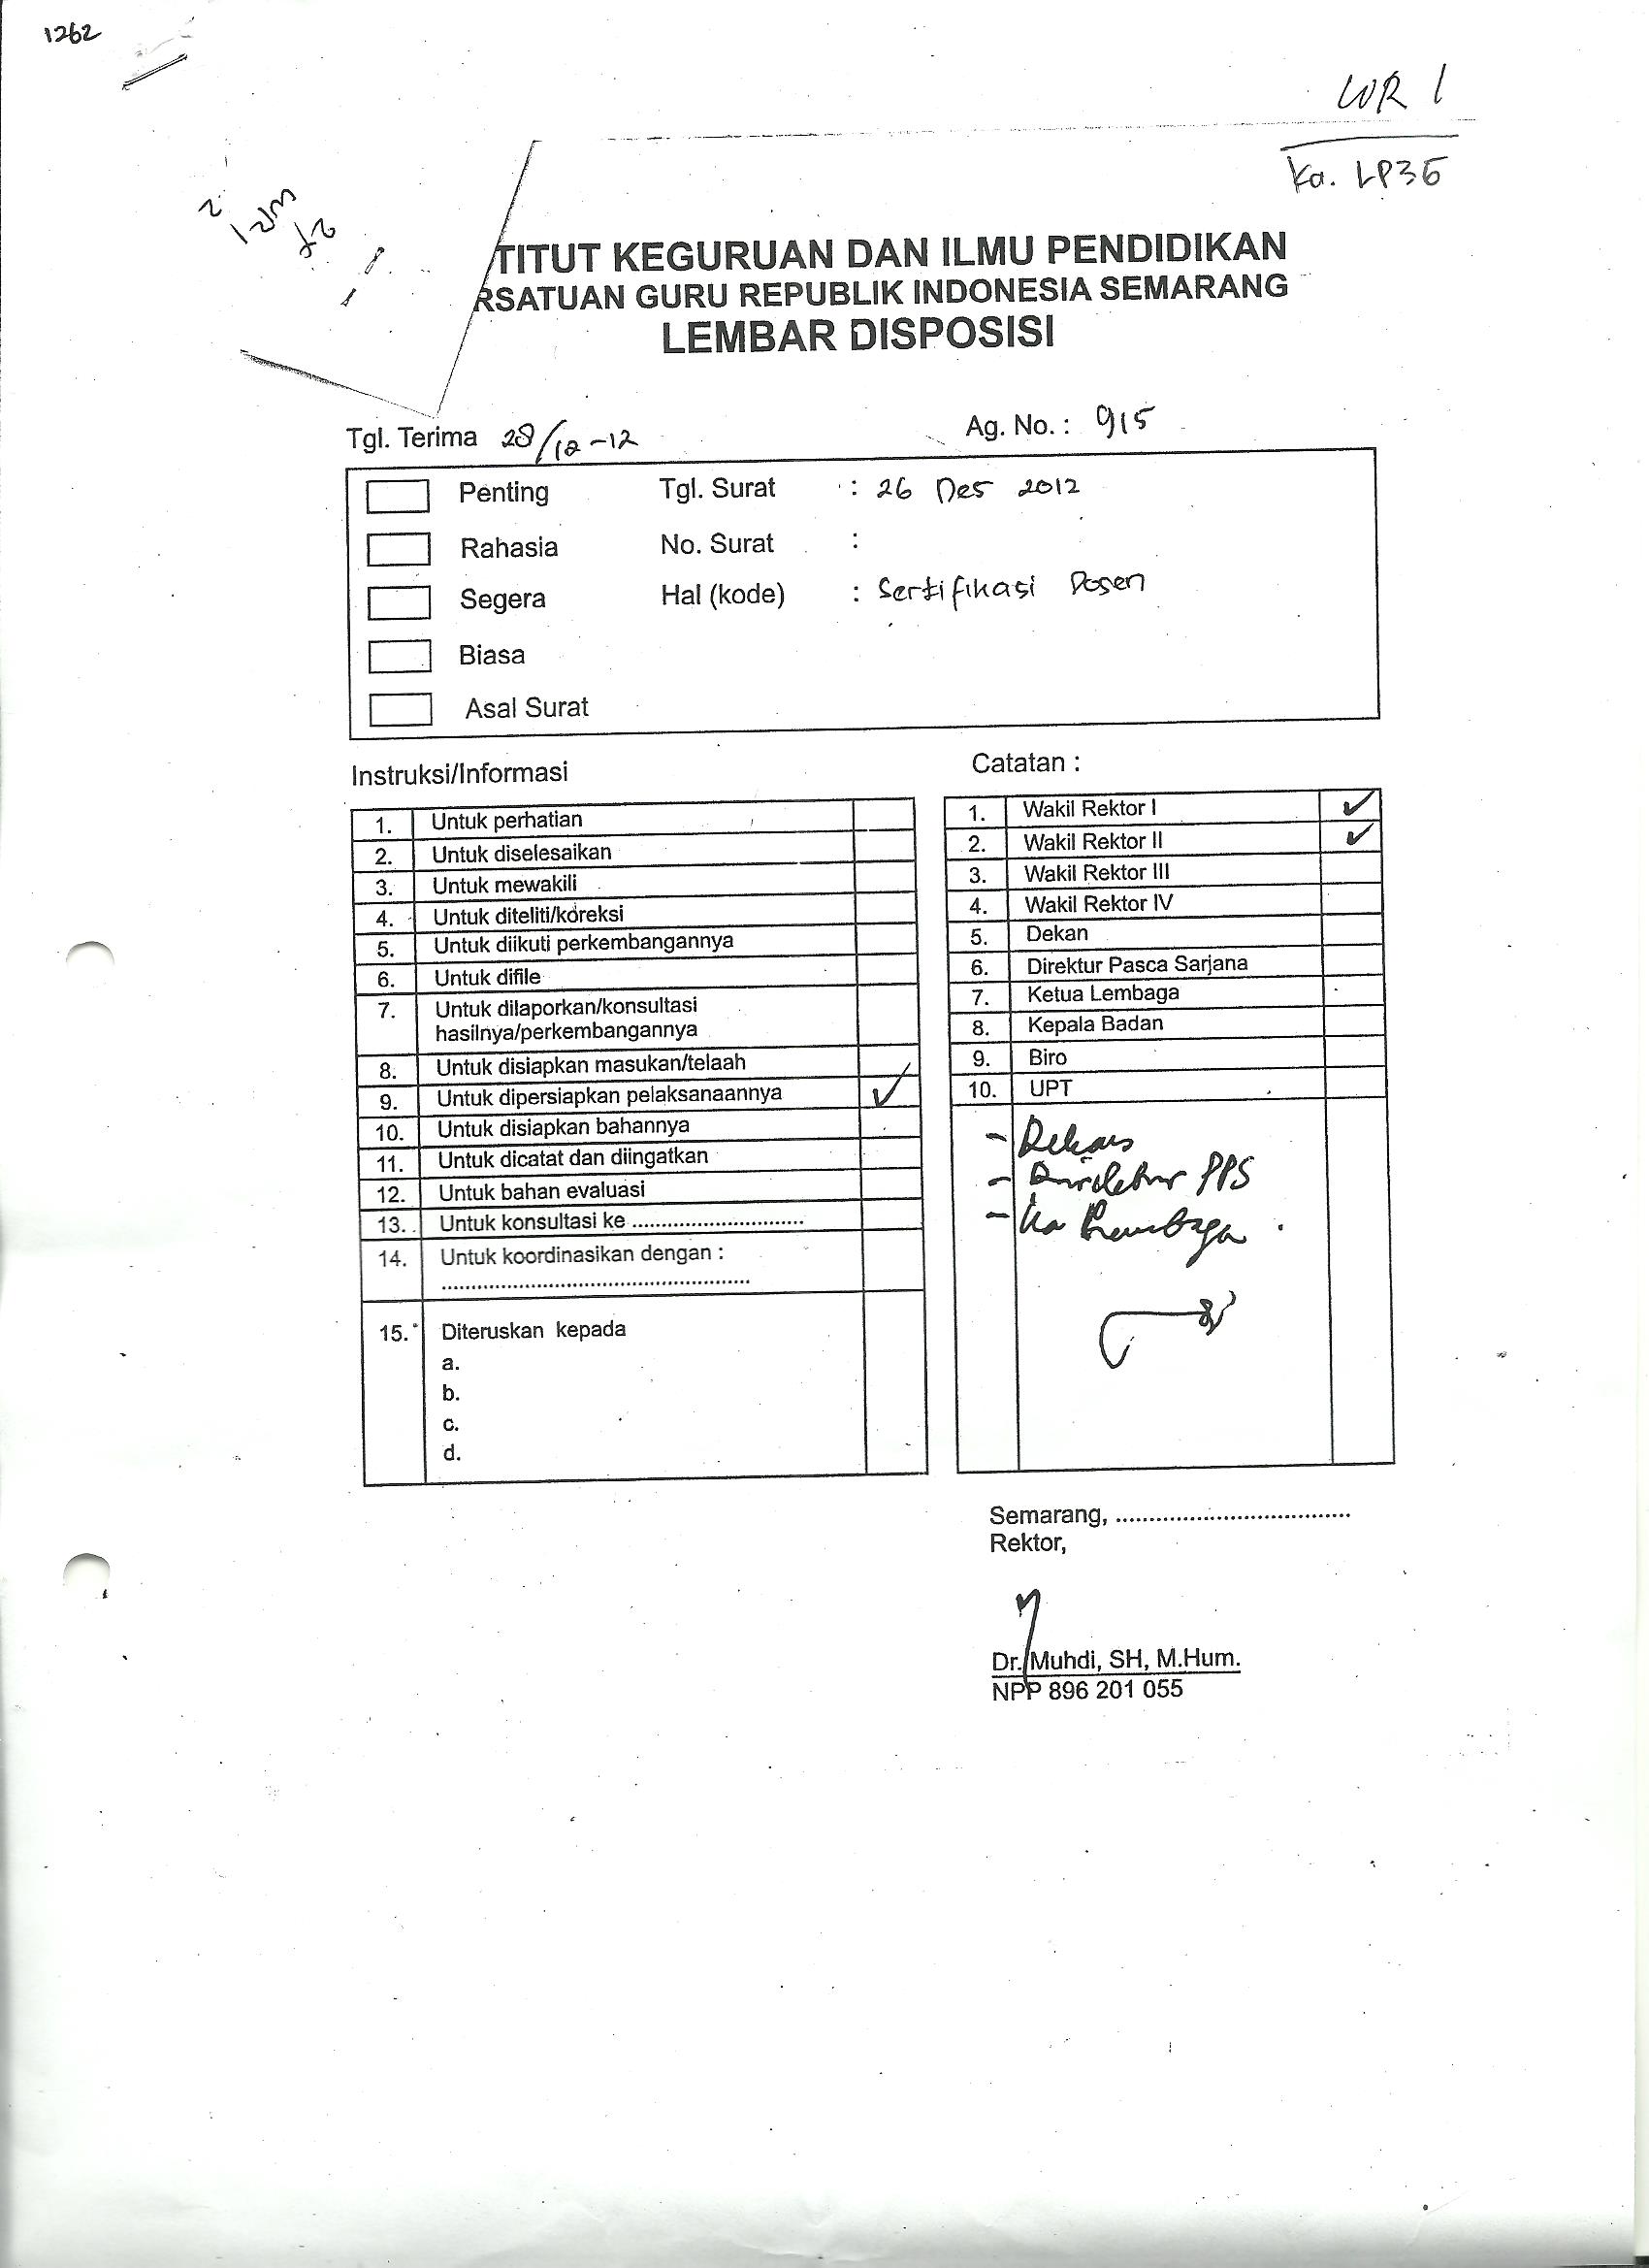 1262
WR 1
Ka. LP3G
TITUT KEGURUAN DAN ILMU PENDIDIKAN
RSATUAN GURU REPUBLIK INDONESIA SEMARANG
LEMBAR DISPOSISI
Tgl. Terima 28/12-12 Ag. No. : 915
Penting Tgl. Surat : 26 Des 2012
Rahasia No. Surat :
Segera Hal (kode) : Sertifikasi Dosen
Biasa
Asal Surat
Instruksi/Informasi
1. Untuk perhatian
2. Untuk diselesaikan
3. Untuk mewakili
4. Untuk diteliti/koreksi
5. Untuk diikuti perkembangannya
6. Untuk difile
7. Untuk dilaporkan/konsultasi
hasilnya/perkembangannya
8. Untuk disiapkan masukan/telaah
9. Untuk dipersiapkan pelaksanaannya ✓
10. Untuk disiapkan bahannya
11. Untuk dicatat dan diingatkan
12. Untuk bahan evaluasi
13. Untuk konsultasi ke ............................
14. Untuk koordinasikan dengan :
..................................................
15. Diteruskan kepada
a.
b.
c.
d.
Catatan :
1. Wakil Rektor I ✓
2. Wakil Rektor II ✓
3. Wakil Rektor III
4. Wakil Rektor IV
5. Dekan
6. Direktur Pasca Sarjana
7. Ketua Lembaga
8. Kepala Badan
9. Biro
10. UPT
- Dekan
- Direktur PPS
- Ka Lembaga
Semarang, ...................................
Rektor,
Dr. Muhdi, SH, M.Hum.
NPP 896 201 055